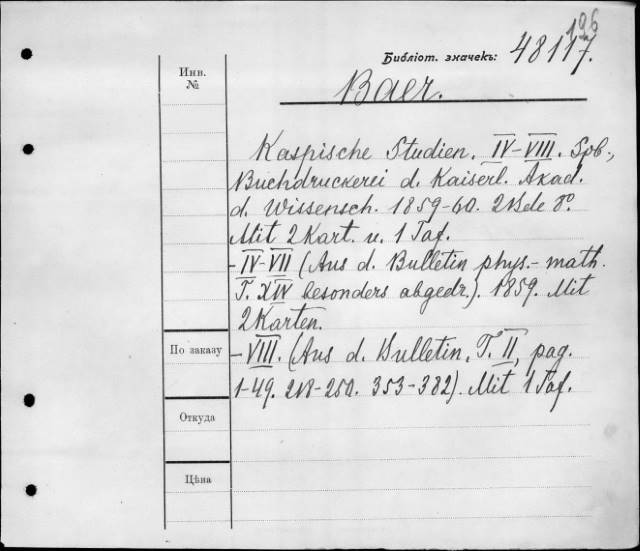 126
Библіот. значекъ: 48117.
Инв.
№
Baer.
Kaspische Studien. IV-VIII. Spb.,
Buchdruckerei d. Kaiserl. Akad.
d. Wissensch. 1859-60. 2Bde 8º.
Mit 2 Kart. u. 1 Taf.
-IV-VII (Aus d. Bulletin phys.-math.
T. XIV besonders abgedr.). 1859. Mit
2 Karten.
По заказу
-VIII. (Aus d. Bulletin, T. II, pag.
1-49. 218-250. 353-382). Mit 1 Taf.
Откуда
Цѣна